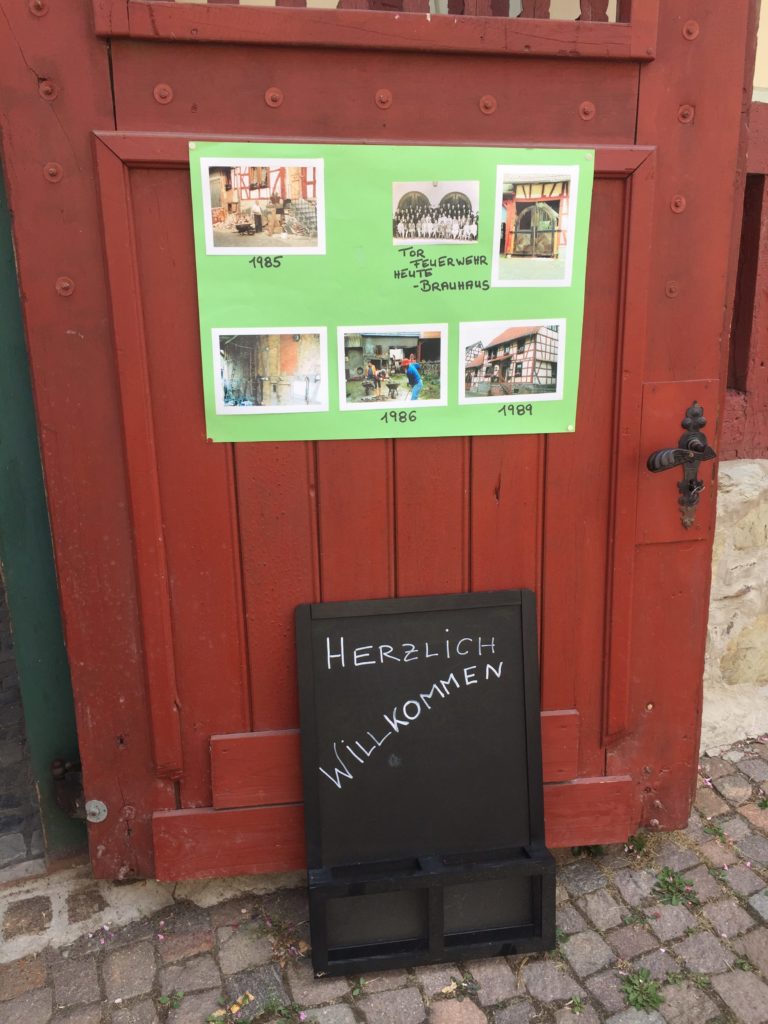 1985
TOR
FEUERWEHR
HEUTE
-BRAUHAUS
1986
1989
HERZLICH
WILLKOMMEN